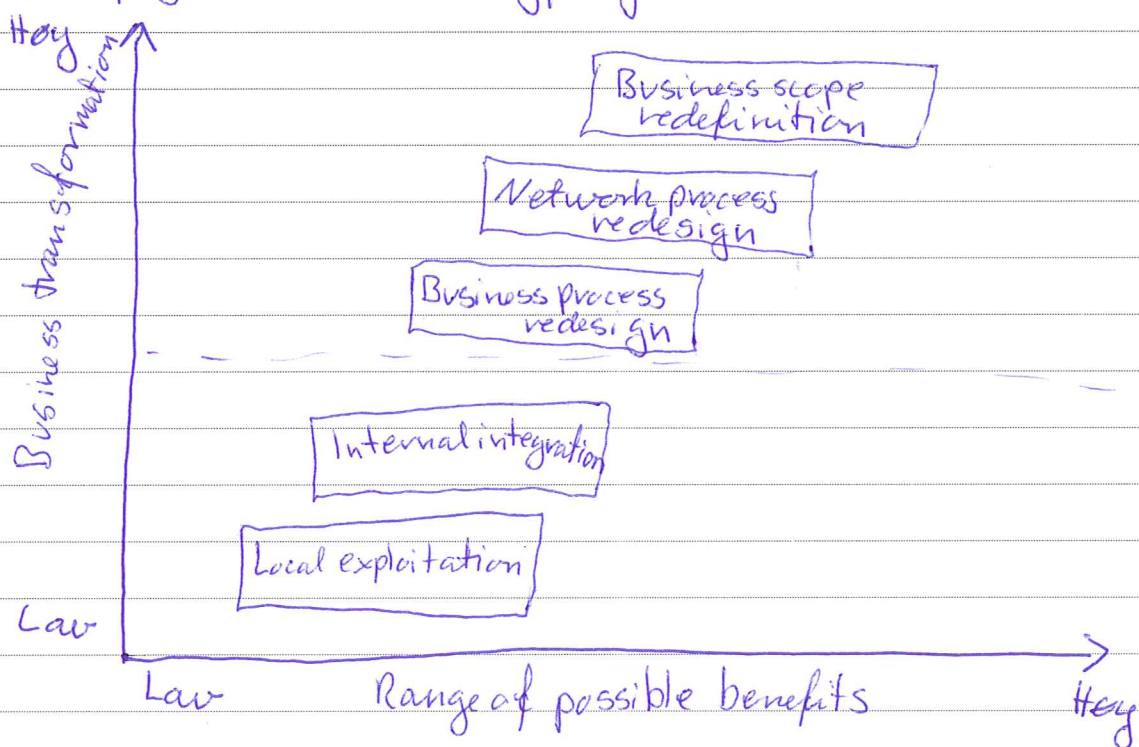 Høy
Business transformation
Business scope
redefinition
Network process
redesign
Business process
redesign
Internal integration
Local exploitation
Lav
Lav
Range of possible benefits
Høy